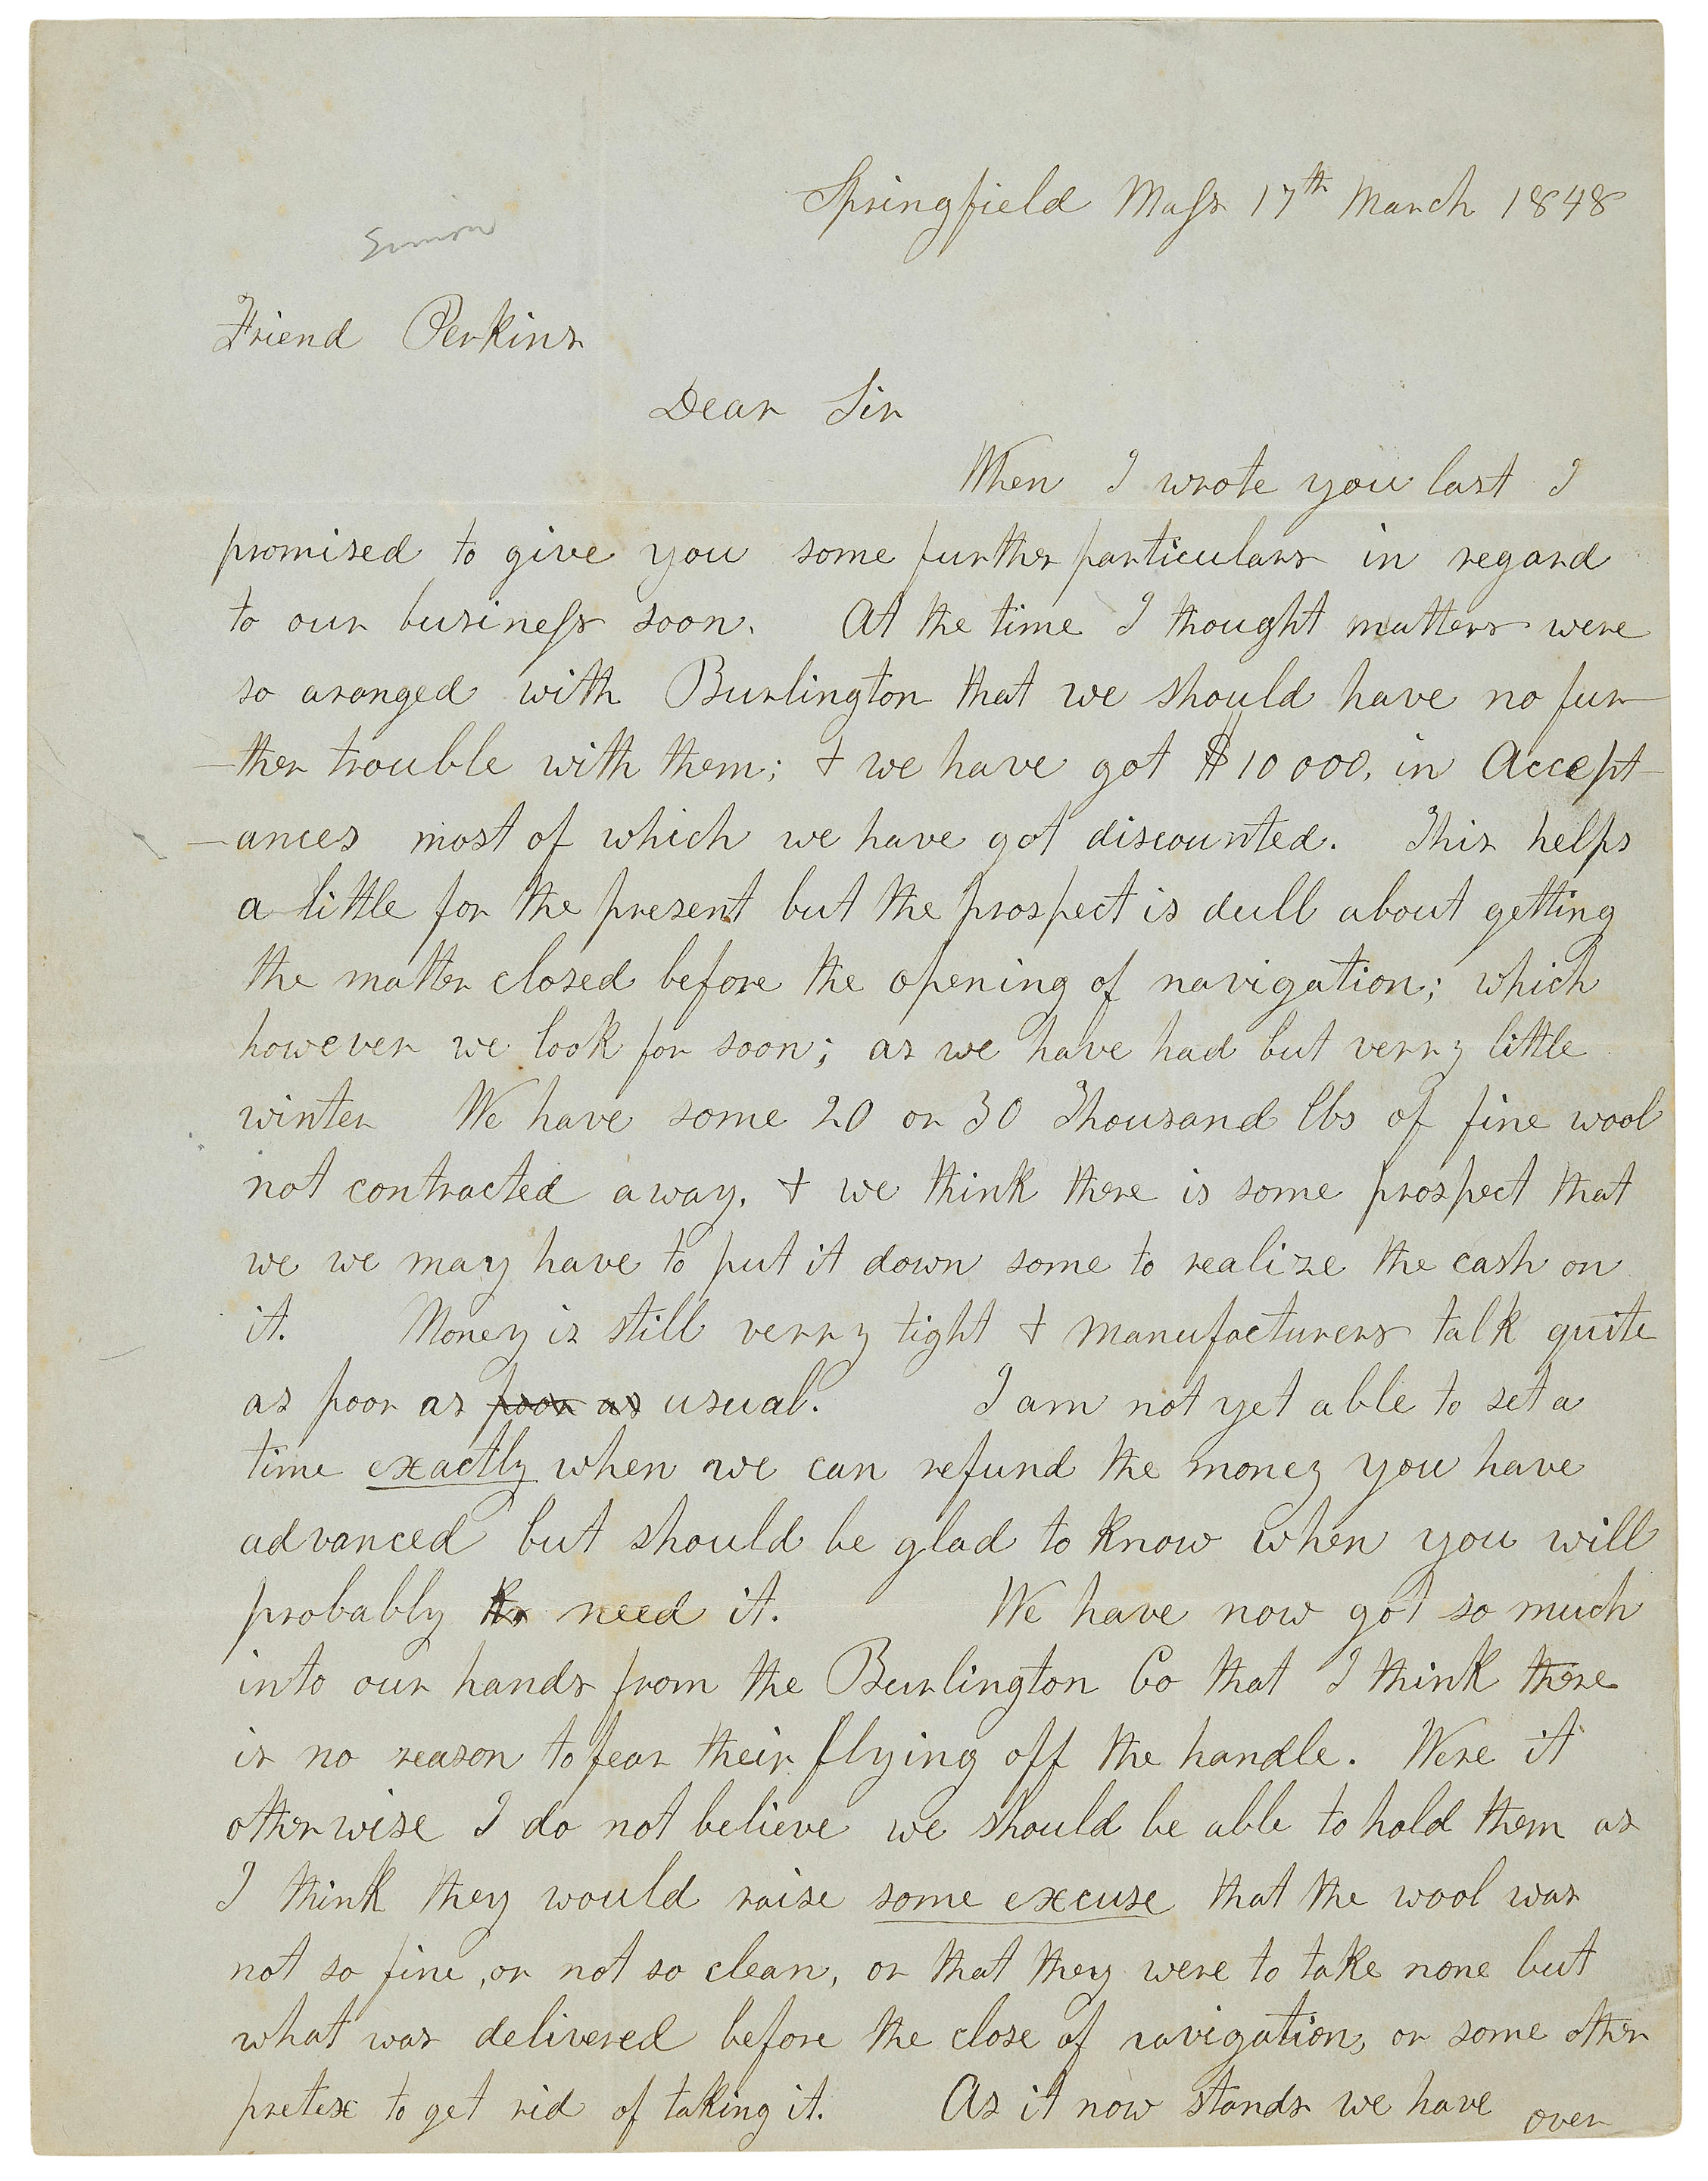 Springfield Mass 17th March 1848
Simon
Friend Perkins
Dear Sir
When I wrote you last I
promised to give you some further particulars in regard
to our business soon. At the time I thought matters were
so aranged with Burlington that we should have no fur-
-ther trouble with them; & we have got $10 000, in Accept-
-ances most of which we have got discounted. This helps
a little for the present but the prospect is dull about getting
the matter closed before the opening of navigation; which
however we look for soon; as we have had but verry little
winter We have some 20 or 30 Thousand lbs of fine wool
not contracted away, & we think there is some prospect that
we we may have to put it down some to realize the cash on
it. Money is still verry tight & manufacturers talk quite
as poor as poor as usual. I am not yet able to set a
time exactly when we can refund the money you have
advanced but should be glad to know when you will
probably need it. We have now got so much
into our hands from the Burlington Co that I think there
is no reason to fear their flying off the handle. Were it
otherwise I do not believe we should be able to hold them as
I think they would raise some excuse that the wool was
not so fine, or not so clean, or that they were to take none but
what was delivered before the close of navigation, or some other
pretex to get rid of taking it. As it now stands we have
over